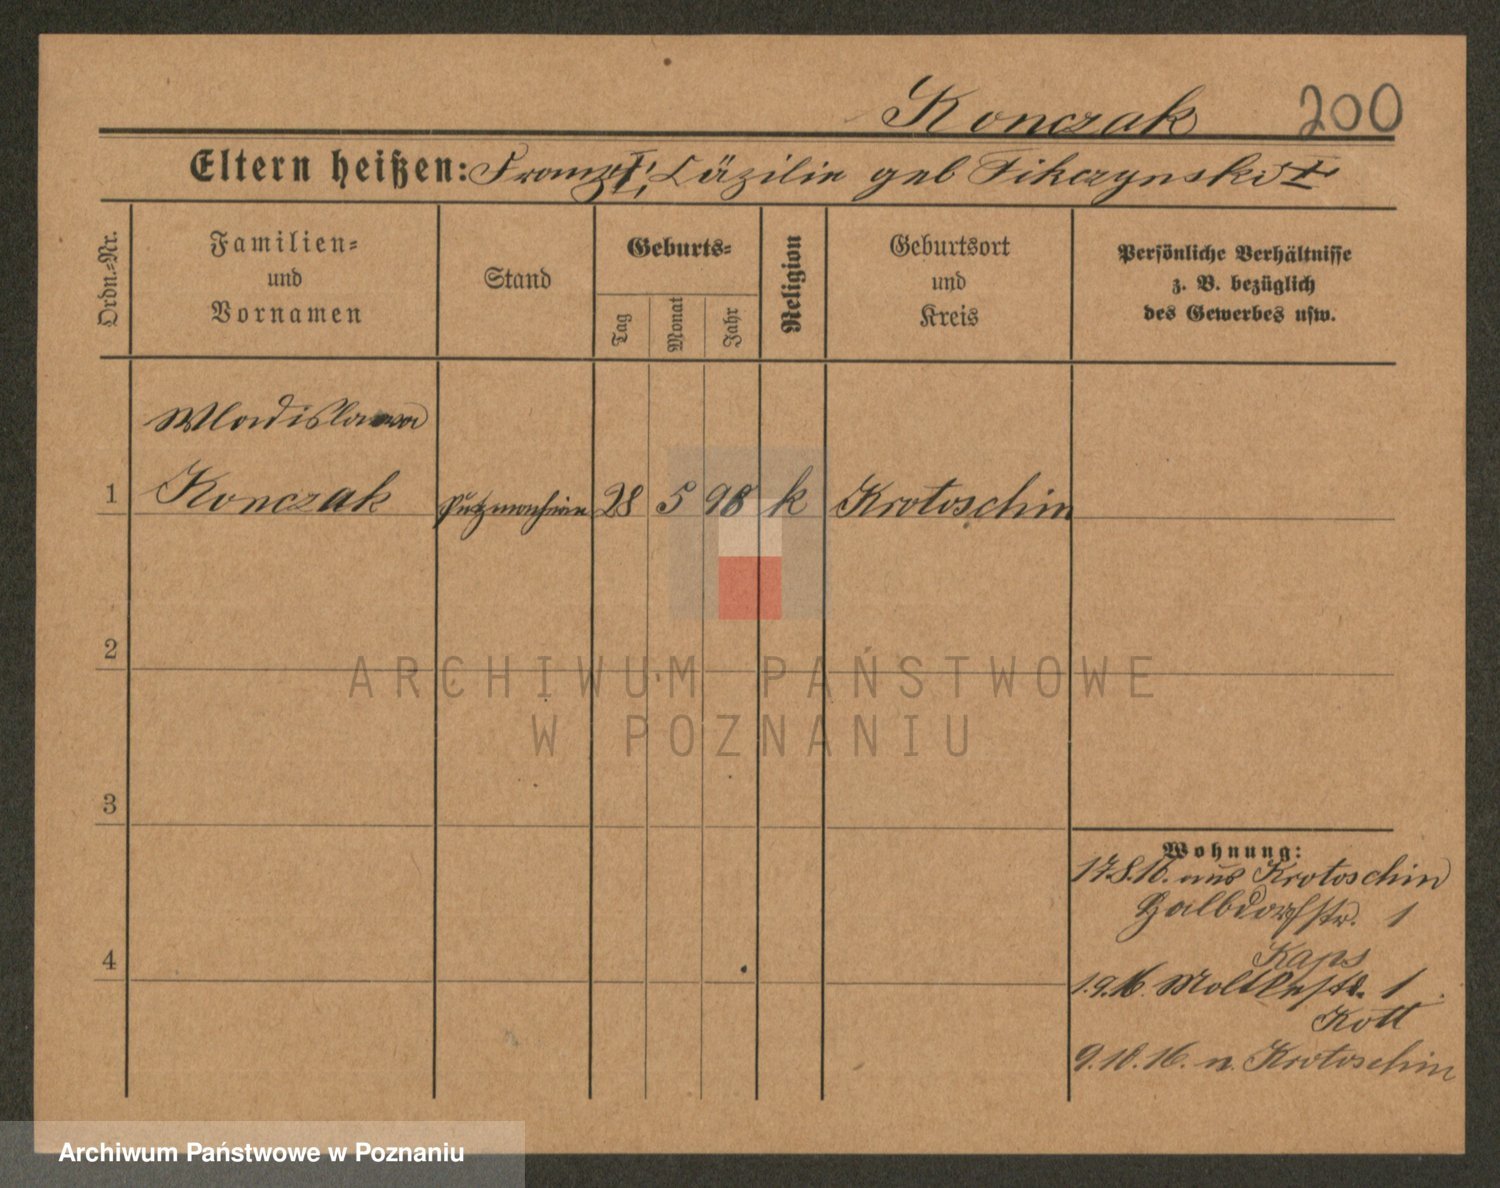 Konczak 200
Eltern heißen: Franz †, Cäzilie geb Fikczynski †
Ordn.-Nr.
Familien-
und
Vornamen
Stand
Geburts-
Tag
Monat
Jahr
Religion
Geburtsort
und
Kreis
Persönliche Verhältnisse
z. B. bezüglich
des Gewerbes usw.
Wladislawa
1 Konczak 28 5 98 k Krotoschin
2
ARCHIWUM PAŃSTWOWE
W POZNANIU
3
Wohnung:
17.8.16. aus Krotoschin
Halbdorfstr. 1
Kaps
4
1.9.16. Moltkestr. 1
Kott
9.10.16. n. Krotoschin
Archiwum Państwowe w Poznaniu